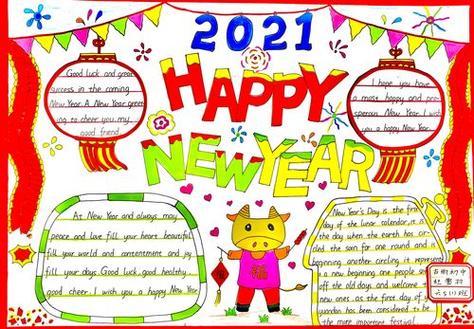 2021
HAPPY
NEW YEAR
Good luck and great
success in the coming
New Year. A New Year greet-
ing to cheer you, my
good friend.
I hope you have
a most happy and pro-
sperous New Year. I wish
you a happy New Year.
At New Year and always may
peace and love fill your heart beautiful
fill your world and contentment and joy
fill your days. Good luck, good healthy
good cheer. I wish you a happy New Year
福
New Year's Day is the first
day of the lunar calendar, it is
the day when the earth has cir-
cled the sun for one round and is
beginning another circling. it represents
a new beginning one people send
off the old days and welcome the
new ones. as the first day of
has been considered to be
the more important festival